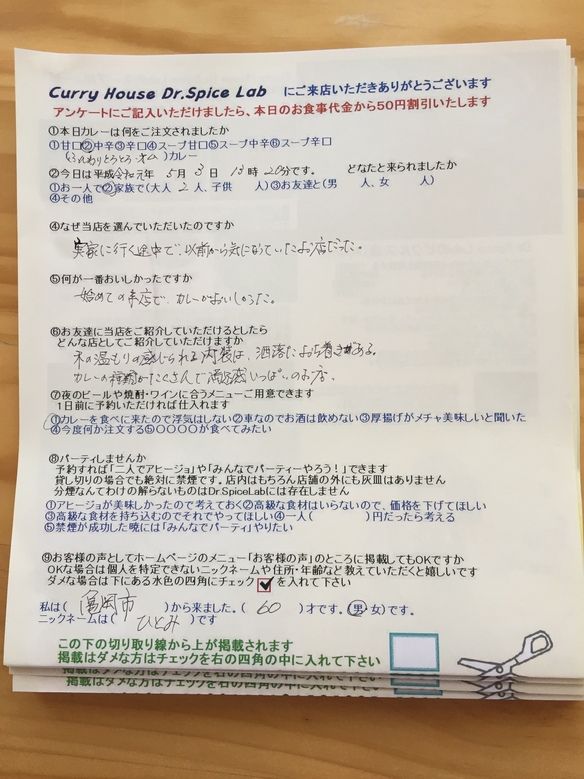 Curry House Dr.Spice Lab にご来店いただきありがとうございます
アンケートにご記入いただけましたら、本日のお食事代金から50円割引いたします
①本日カレーは何をご注文されましたか
①甘口②中辛③辛口④スープ甘口⑤スープ中辛⑥スープ辛口
(ふんわりとろとろオム)カレー
②今日は平成令和元年 5月3日 時20分です。 どなたと来られましたか
①お一人で②家族で(大人 2人、子供 人)③お友達と(男 人、女 人)
④その他
④なぜ当店を選んでいただいたのですか
実家に行く途中で、以前から気になっていたお店だった。
⑤何が一番おいしかったですか
始めての来店で、カレーがおいしかった。
⑥お友達に当店をご紹介していただけるとしたら
どんな店としてご紹介していただけますか
木の温もりの感じられる内装は、洒落たおち着きある。
カレーの種類がたくさんで満足感いっぱいのお店、
⑦夜のビールや焼酎・ワインに合うメニューご用意できます
1日前に予約いただければ仕入れます
①カレーを食べに来たので浮気はしない②車なのでお酒は飲めない③厚揚げがメチャ美味しいと聞いた
④今度何か注文する⑤〇〇〇〇が食べてみたい
⑧パーティしませんか
予約すれば「二人でアヒージョ」や「みんなでパーティーやろう!」できます
貸し切りの場合でも絶対に禁煙です。店内はもちろん店舗の外にも灰皿はありません
分煙なんてわけの解らないものはDr.SpiceLabには存在しません
①アヒージョが美味しかったので考えておく②高級な食材はいらないので、価格を下げてほしい
③高級な食材を持ち込むのでそれでやってほしい④一人( )円だったら考える
⑤禁煙が成功した暁には「みんなでパーティ」やりたい
⑨お客様の声としてホームページのメニュー「お客様の声」のところに掲載してもOKですか
OKな場合は個人を特定できないニックネームや住所・年齢など教えていただくと嬉しいです
ダメな場合は下にある水色の四角にチェック を入れて下さい
私は( 亀岡市 )から来ました。( 60 )才です。(男・女)です。
ニックネームは( ひとみ )です
この下の切り取り線から上が掲載されます
掲載はダメな方はチェックを右の四角の中に入れて下さい
掲載はダメな方はチェックを右の四角の中に入れて下さい